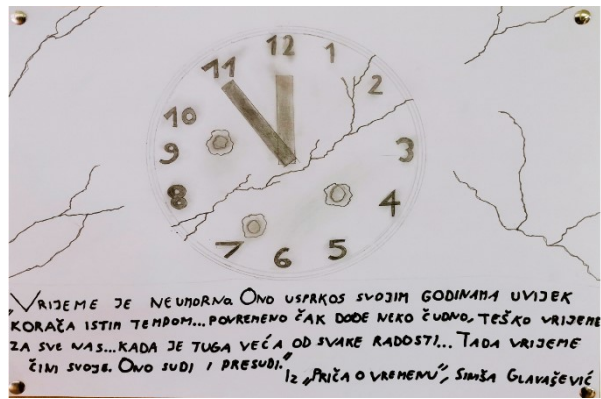 12
11 1
10 2
9 3
8 4
7 5
6
„VRIJEME JE NEUMORNO. ONO USPRKOS SVOJIM GODINAMA UVIJEK
KORAČA ISTIM TEMPOM...POVREMENO ČAK DOĐE NEKO ČUDNO, TEŠKO VRIJEME
ZA SVE NAS...KADA JE TUGA VEĆA OD SVAKE RADOSTI... TADA VRIJEME
ČINI SVOJE. ONO SUDI I PRESUDI.“
IZ „PRIČA O VREMENU“, SINIŠA GLAVAŠEVIĆ